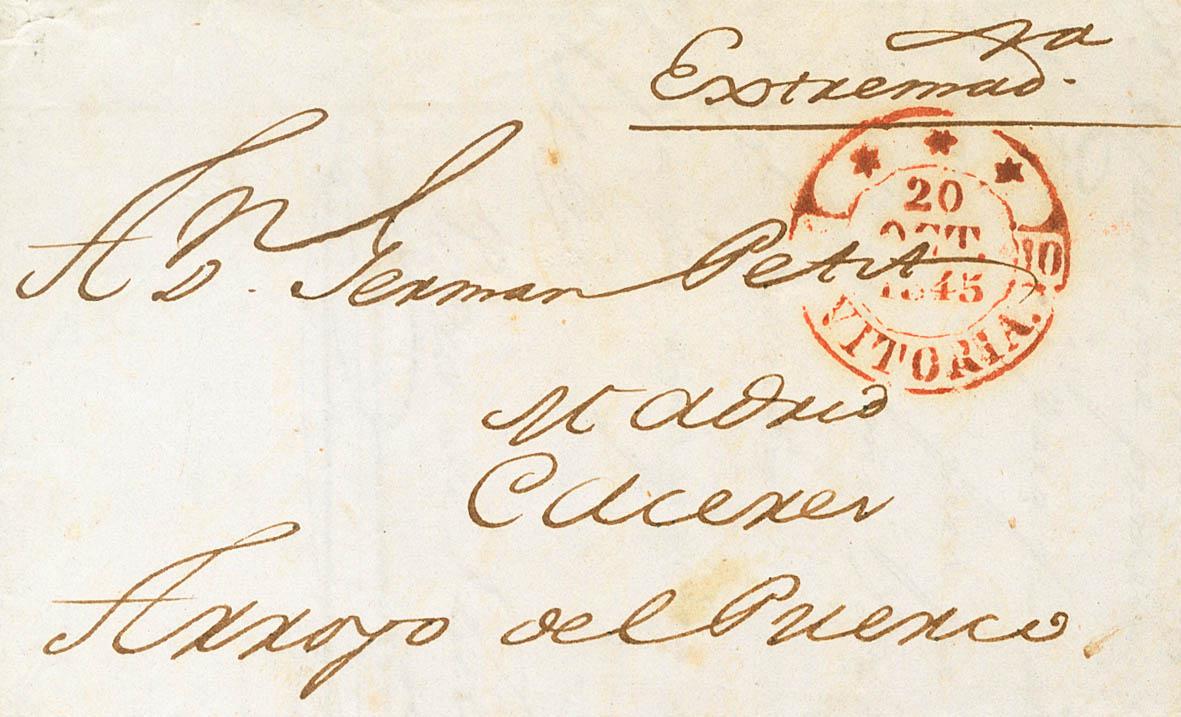 Extremad.ra
A D. German Petit
20
OCT.
1845
VITORIA.
Madrid
Caceres
Arroyo del Puerco